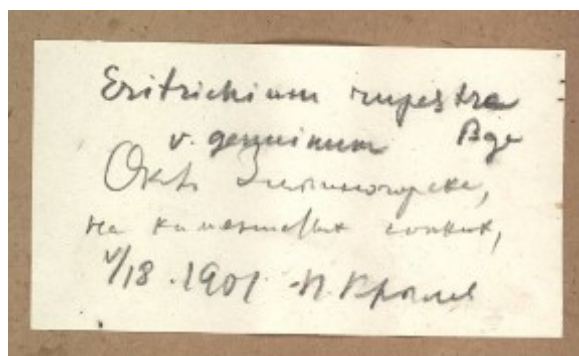 Eritrichium rupestre
v. genuinum Bge
Окр. Змеиногорска,
на каменистых сопках,
V/18. 1901 П. Крылов